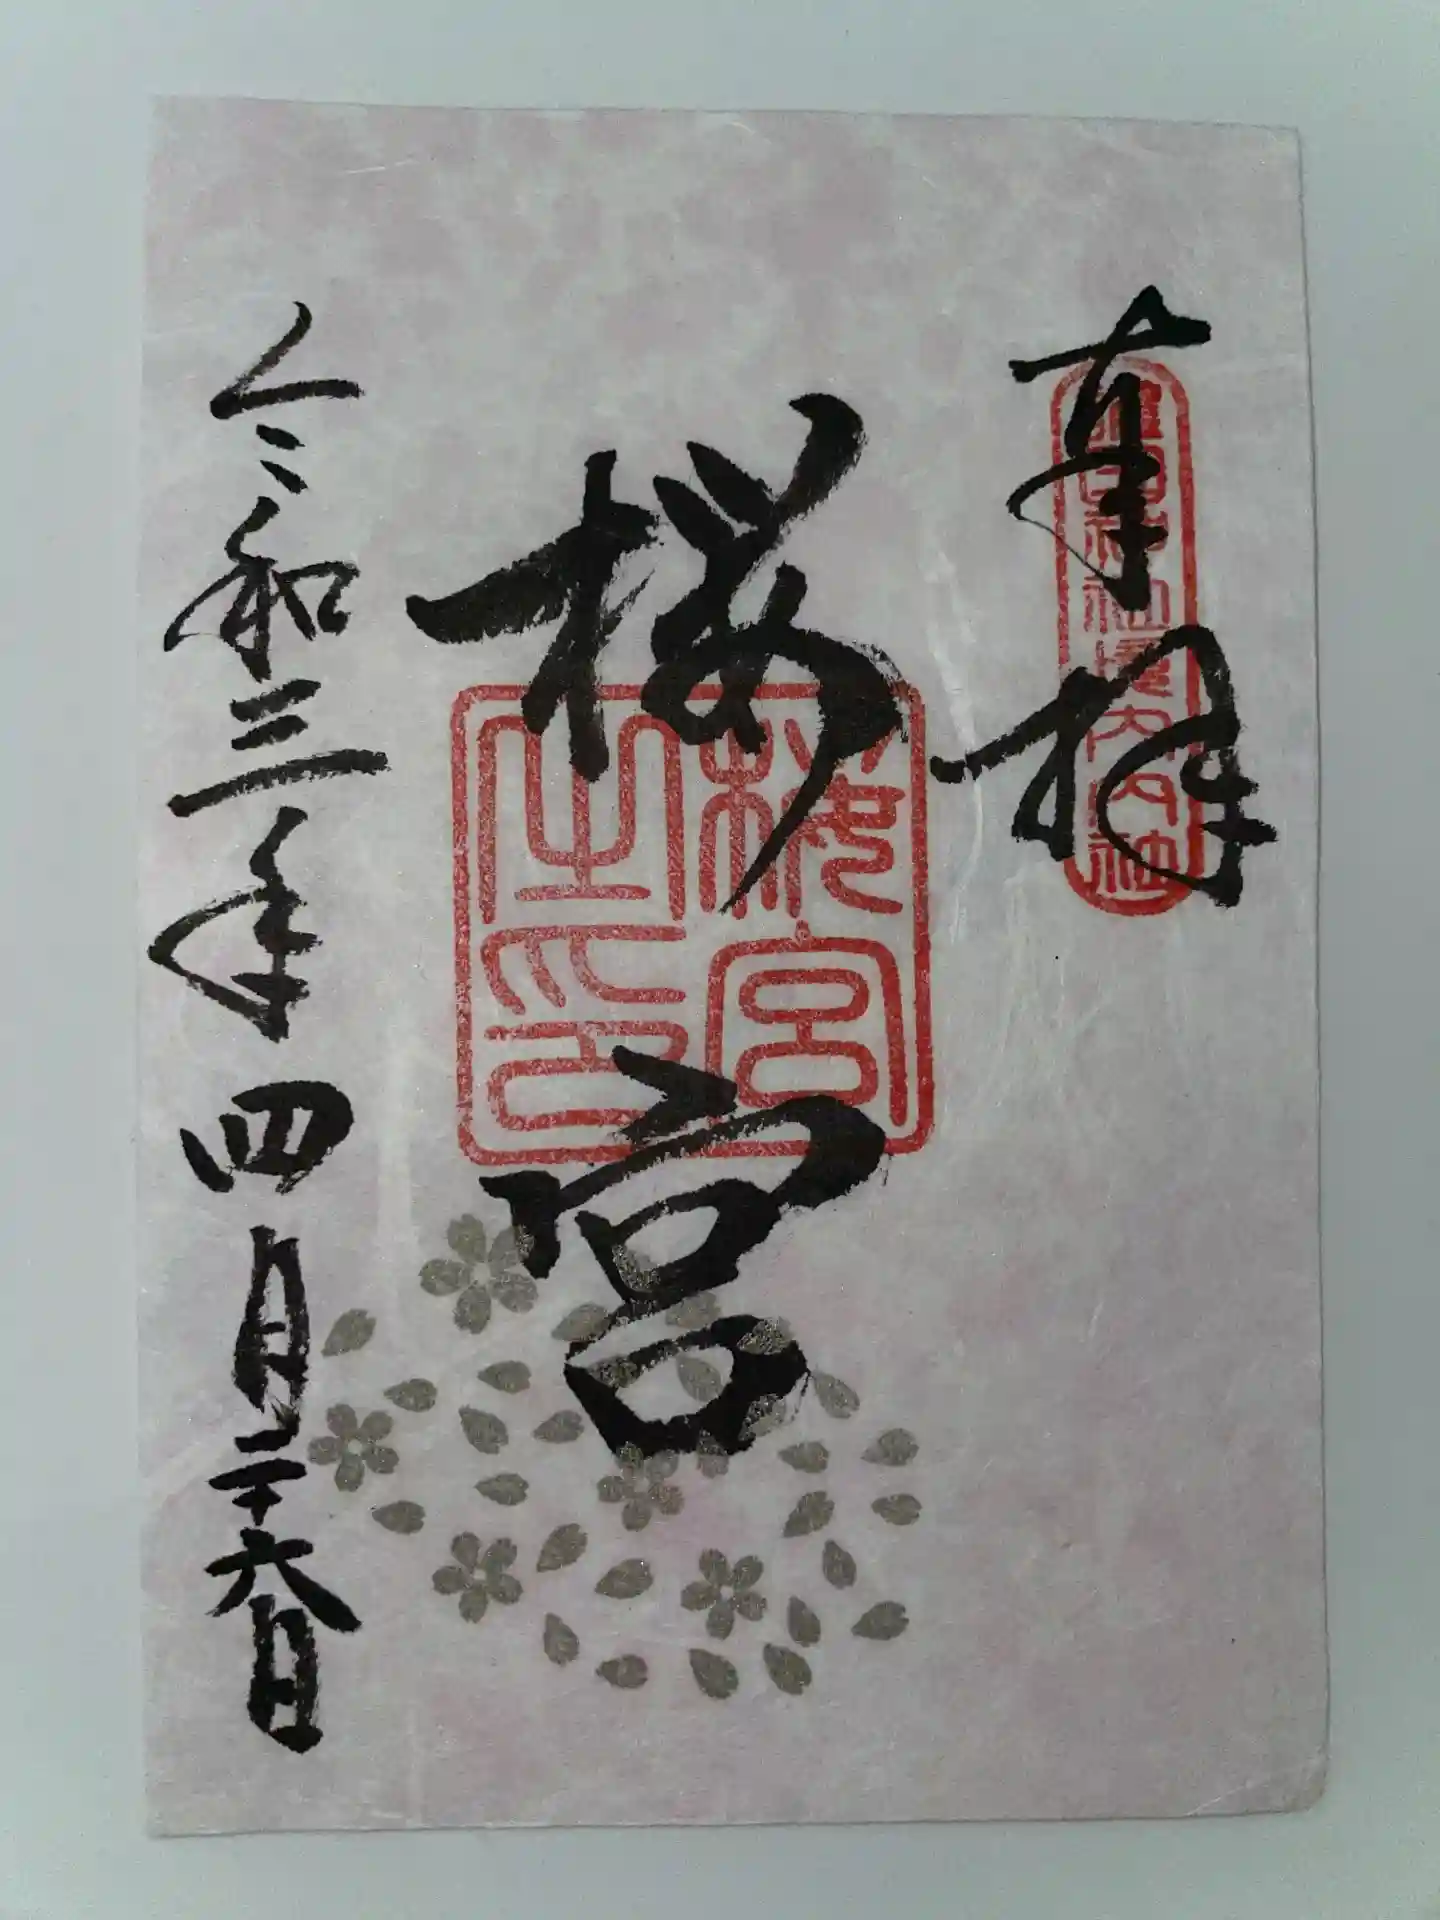 奉拝
桜宮
桜宮之印
令和三年四月二十六日